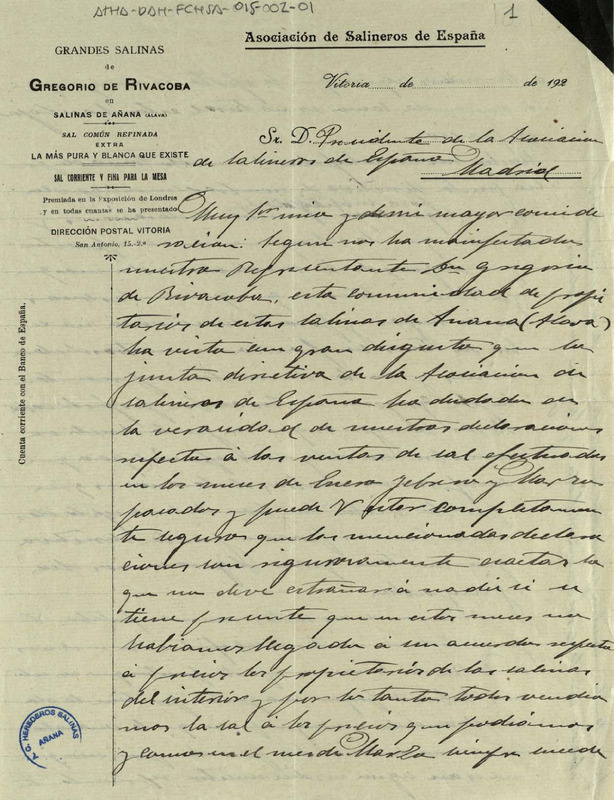 ATHA-DAH-FCHSA-015-002-01
1
Asociación de Salineros de España
GRANDES SALINAS
de
GREGORIO DE RIVACOBA
en
SALINAS DE AÑANA (ALAVA)
SAL COMÚN REFINADA
EXTRA
LA MÁS PURA Y BLANCA QUE EXISTE
SAL CORRIENTE Y FINA PARA LA MESA
Premiada en la Exposición de Londres
y en todas cuantas se ha presentado
DIRECCIÓN POSTAL VITORIA
San Antonio, 15.-2.º
Cuenta corriente con el Banco de España.
Vitoria de de 192
Sr. D. Presidente de la Asociacion
de Salineros de España
Madrid
Muy Sr mio y de mi mayor conside
racion: Segun nos ha manifestado
nuestro Representante Dn Gregorio
de Rivacoba, esta comunidad de propie
tarios de estas Salinas de Añana (Alava)
ha visto con gran disgusto que la
junta directiva de la Asociacion de
Salineros de España ha dudado en
la veracidad de nuestras declaraciones
respectos á las ventas de sal efectuadas
en los meses de Enero Febrero y Marzo
pasados y puede V estar completamen
te seguro que las mencionadas declara
ciones son rigurosamente exactas lo
que no deve estrañar á nadie si se
tiene presente que en estos meses no
habiamos llegado á un acuerdo respecto
á precios los propietarios de las salinas
del interior y por lo tanto todos vendia
mos la sal á los precios que podiamos
y como en el mes de Marzo
HEREDEROS SALINAS
AÑANA